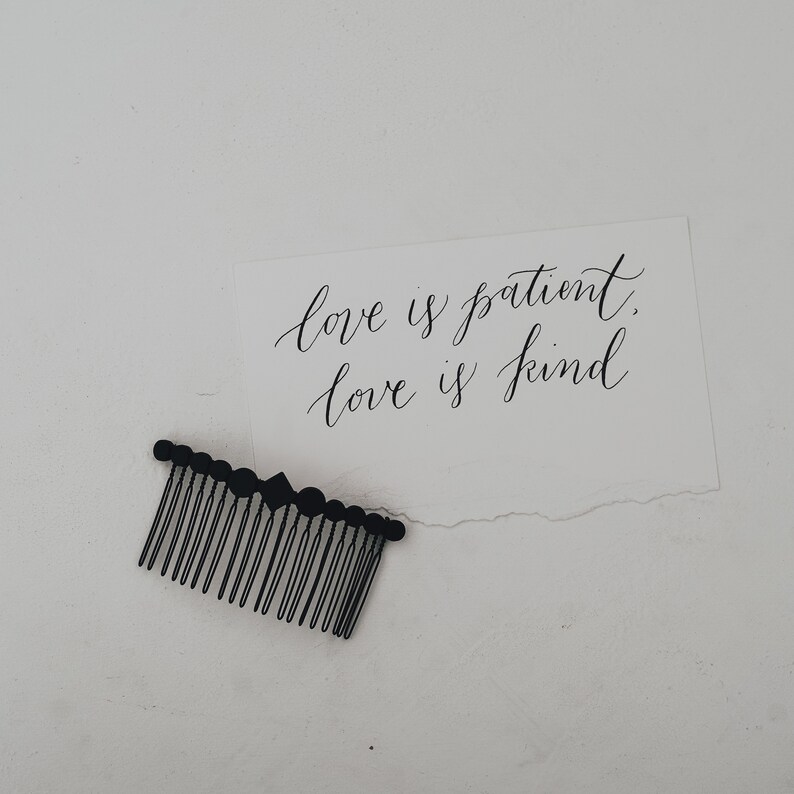 love is patient,
love is kind